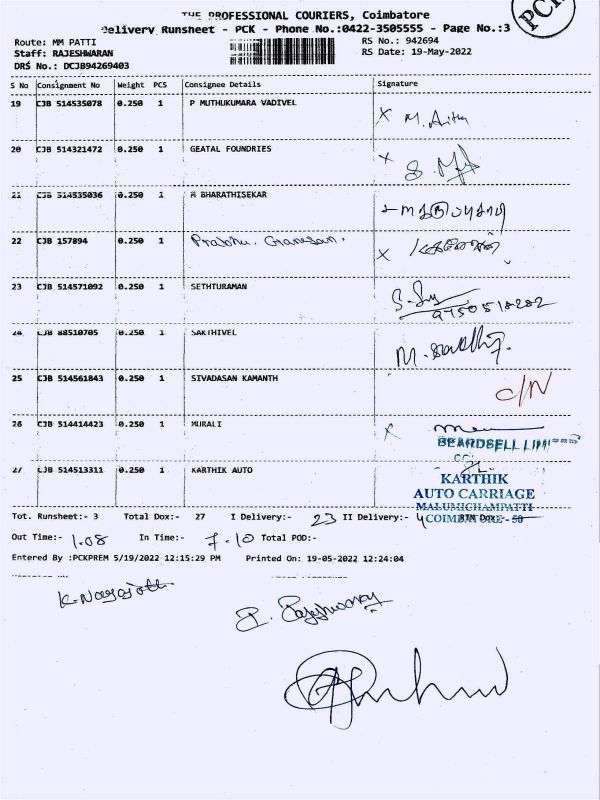 THE PROFESSIONAL COURIERS, Coimbatore
Delivery Runsheet - PCK - Phone No.:0422-3505555 - Page No.:3
PCK
Route: MM PATTI
RS No.: 942694
Staff: RAJESHWARAN
RS Date: 19-May-2022
DRS No.: DCJB94269403
S No Consignment No Weight PCS Consignee Details Signature
19 CJB 514535078 0.250 1 P MUTHUKUMARA VADIVEL X M.
20 CJB 514321472 0.250 1 GEATAL FOUNDRIES X
21 CJB 514535036 0.250 1 M BHARATHISEKAR
22 CJB 157894 0.250 1 Prabhu. Ganesan. X
23 CJB 514571092 0.250 1 SETHTURAMAN
9750518282
24 CJB 88510705 0.250 1 SAKTHIVEL M. Sakthi
25 CJB 514561843 0.250 1 SIVADASAN KAMANTH C/N
26 CJB 514414423 0.250 1 MURALI X
BEARDSELL LIMITED
27 CJB 514513311 0.250 1 KARTHIK AUTO
KARTHIK
AUTO CARRIAGE
MALUMICHAMPATTI
COIMBATORE - 50
Tot. Runsheet:- 3 Total Dox:- 27 I Delivery:- 23 II Delivery:- 4 RTN Dox:-
Out Time:- 1.08 In Time:- 7.10 Total POD:-
Entered By :PCKPREM 5/19/2022 12:15:29 PM Printed On: 19-05-2022 12:24:04